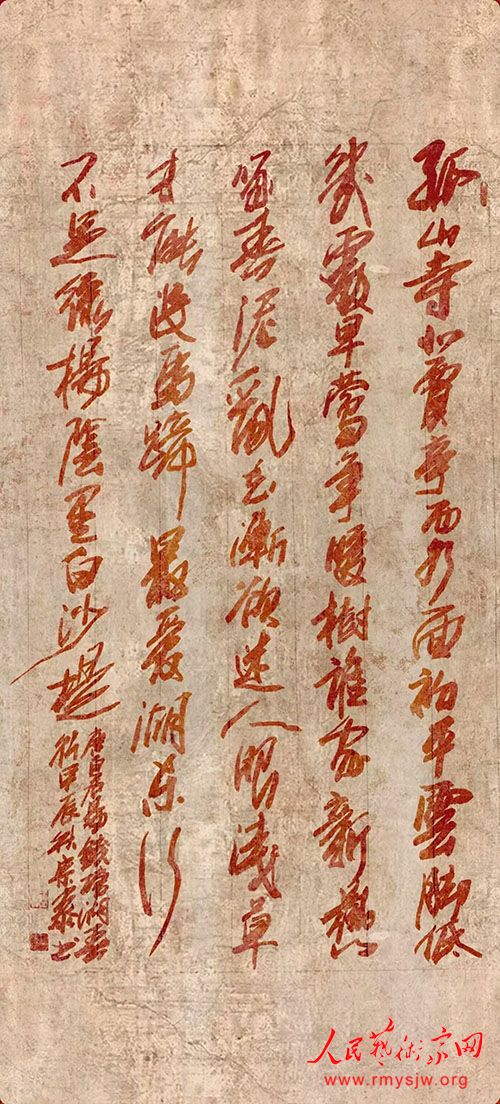 孤山寺北賈亭西水面初平雲脚低
幾處早鶯爭暖樹誰家新燕
啄春泥亂花漸欲迷人眼淺草
才能没馬蹄最愛湖東行
不足綠楊陰里白沙堤
唐白居易錢塘湖春
行甲辰秋
人民藝術家网
www.rmysjw.org